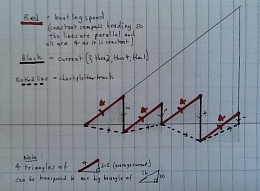 Red = boat log speed
(constant compass heading so
the lines are parallel and
all are 4 as it is constant)
Black = current (3, then 2, then 4, then 1)
Dotted line = chartplotter track
4
4
4
4
Note
4 triangles of 4 2.5 (average current)
can be transposed to one by triangle of 16 10